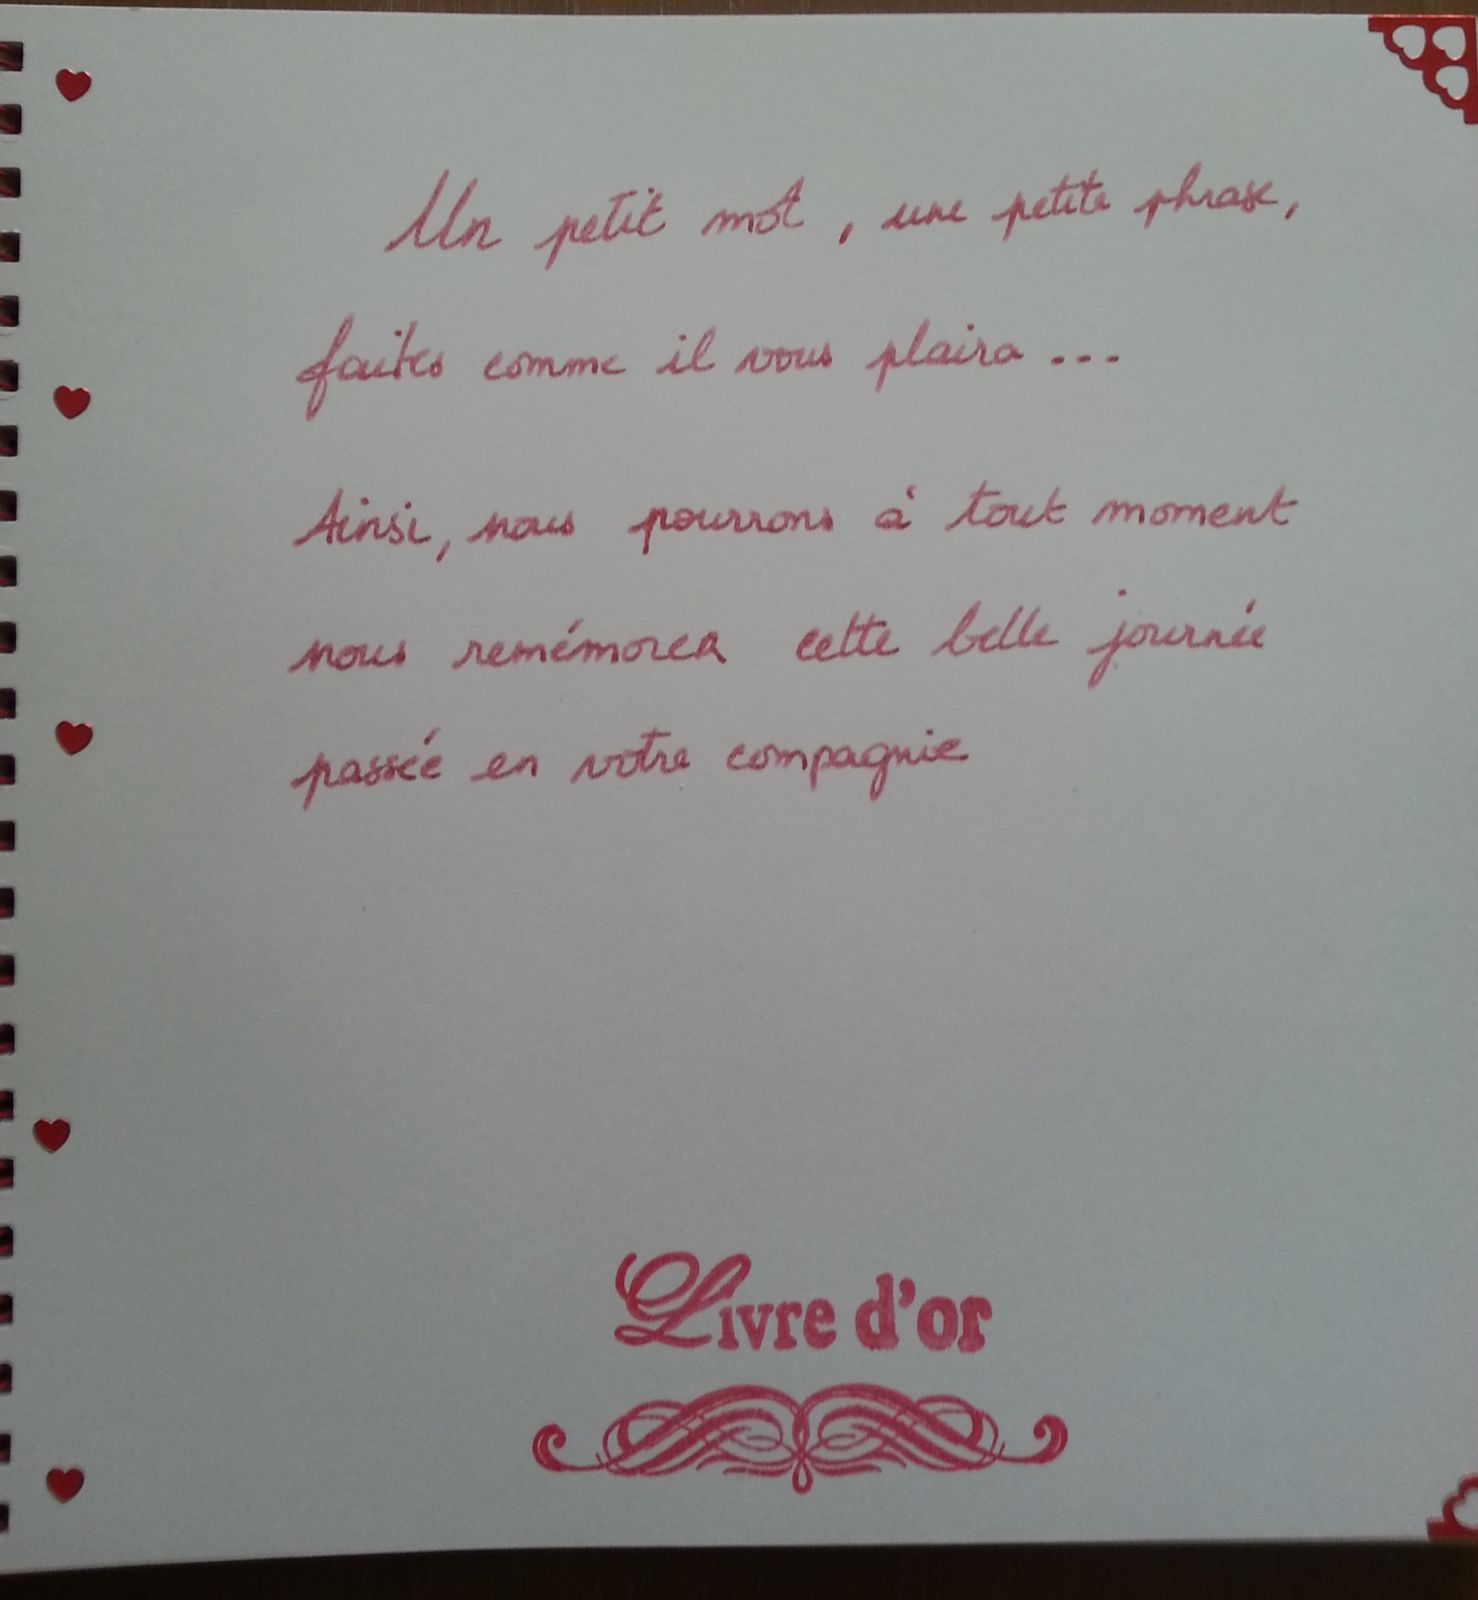 Un petit mot, une petite phrase,
faites comme il vous plaira...
Ainsi, nous pourrons à tout moment
nous remémorer cette belle journée
passée en votre compagnie
Livre d'or